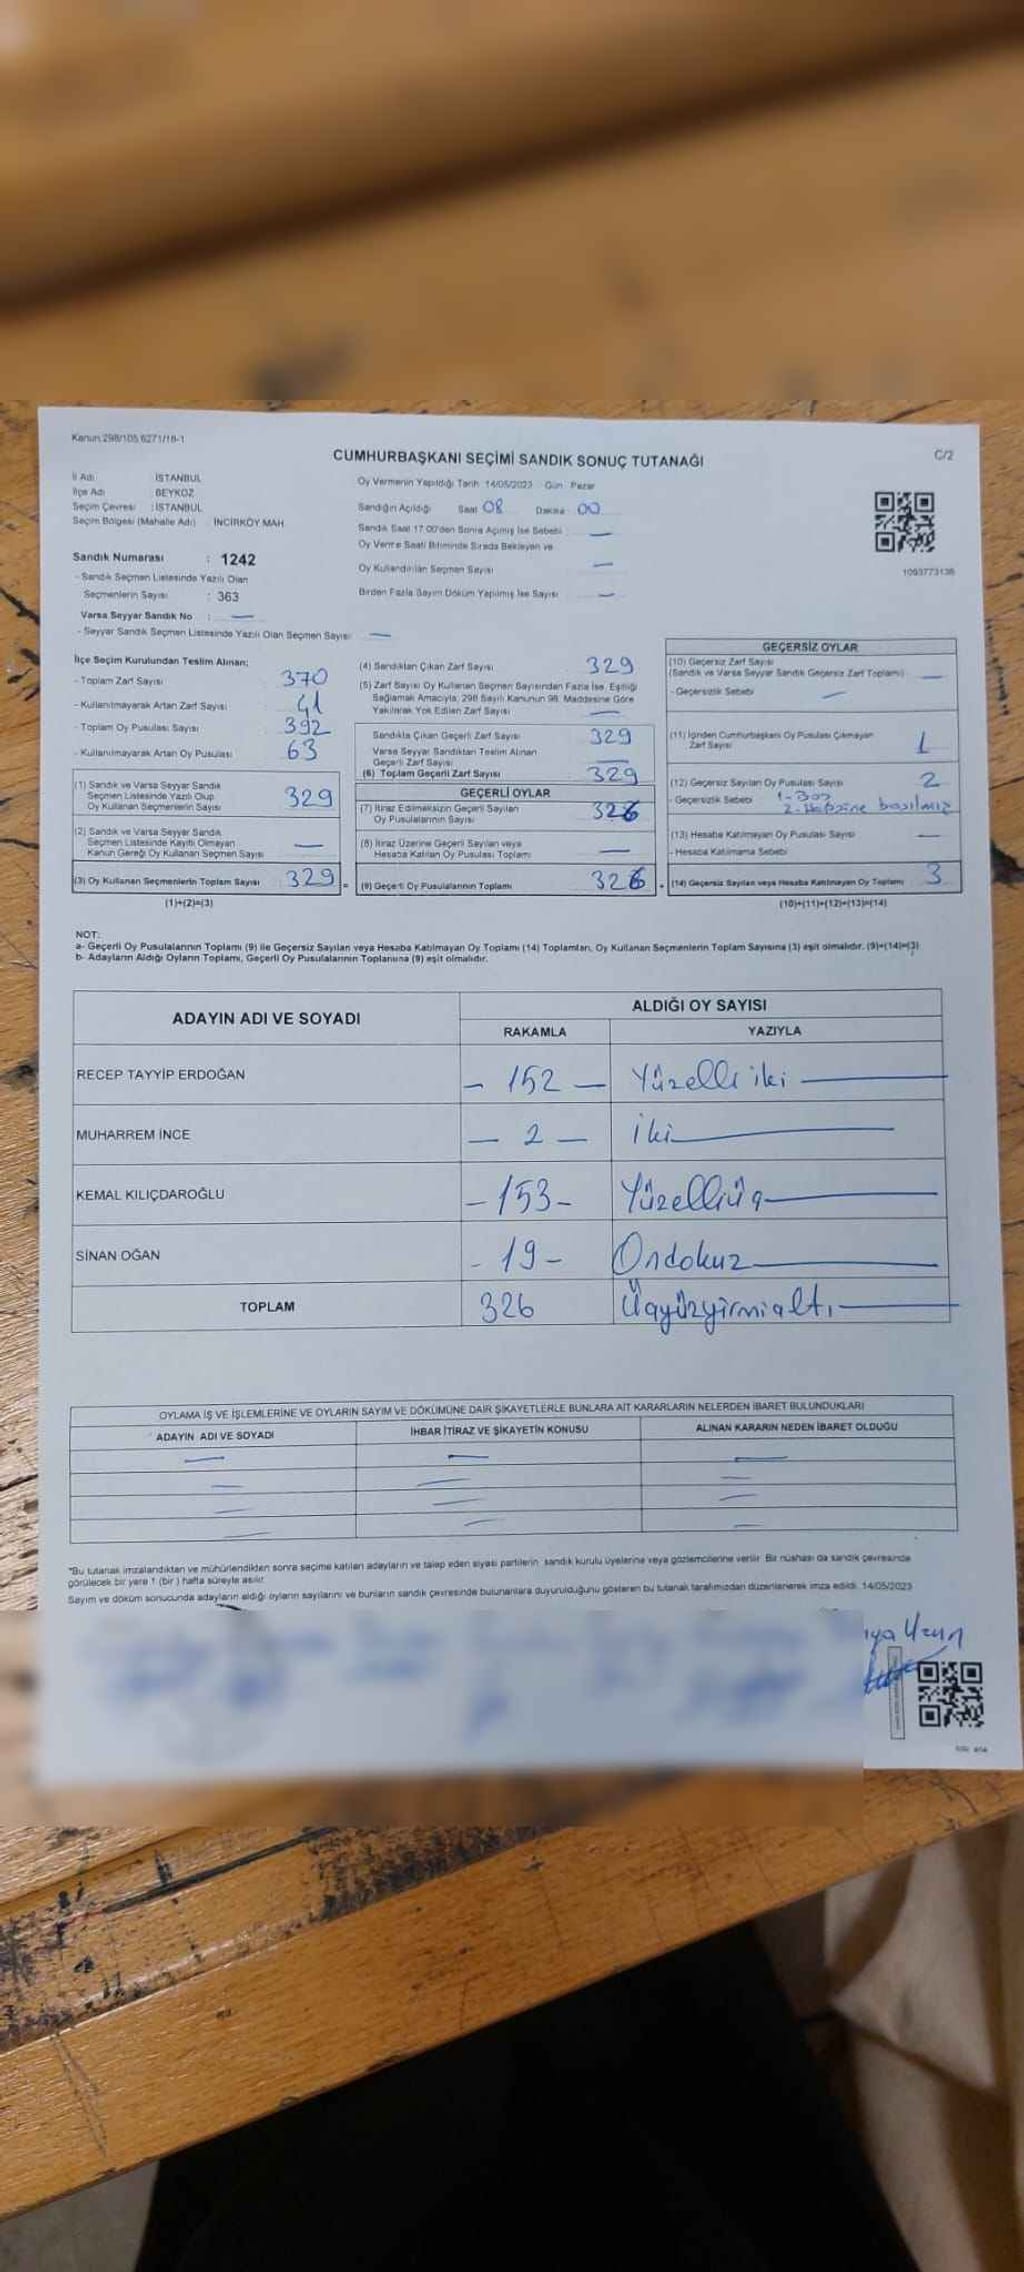 Kanun:298/105,6271/18-1
C/2
CUMHURBAŞKANI SEÇİMİ SANDIK SONUÇ TUTANAĞI
İl Adı : İSTANBUL
İlçe Adı : BEYKOZ
Seçim Çevresi : İSTANBUL
Seçim Bölgesi (Mahalle Adı) : İNCİRKÖY MAH.
Sandık Numarası : 1242
- Sandık Seçmen Listesinde Yazılı Olan
Seçmenlerin Sayısı : 363
Varsa Seyyar Sandık No : —
- Seyyar Sandık Seçmen Listesinde Yazılı Olan Seçmen Sayısı —
Oy Vermenin Yapıldığı Tarih 14/05/2023 Gün Pazar
Sandığın Açıldığı Saat 08 Dakika 00
Sandık Saat 17.00'den Sonra Açılmış İse Sebebi —
Oy Verme Saati Bitiminde Sırada Bekleyen ve
Oy Kullandırılan Seçmen Sayısı —
Birden Fazla Sayım Döküm Yapılmış İse Sayısı —
1093773136
İlçe Seçim Kurulundan Teslim Alınan;
- Toplam Zarf Sayısı 370
- Kullanılmayarak Artan Zarf Sayısı 41
- Toplam Oy Pusulası Sayısı 392
- Kullanılmayarak Artan Oy Pusulası 63
(1) Sandık ve Varsa Seyyar Sandık
Seçmen Listesinde Yazılı Olup
Oy Kullanan Seçmenlerin Sayısı 329
(2) Sandık ve Varsa Seyyar Sandık
Seçmen Listesinde Kayıtlı Olmayan
Kanun Gereği Oy Kullanan Seçmen Sayısı —
(3) Oy Kullanan Seçmenlerin Toplam Sayısı 329 =
(1)+(2)=(3)
(4) Sandıktan Çıkan Zarf Sayısı 329
(5) Zarf Sayısı Oy Kullanan Seçmen Sayısından Fazla İse, Eşitliği
Sağlamak Amacıyla, 298 Sayılı Kanunun 98. Maddesine Göre
Yakılarak Yok Edilen Zarf Sayısı —
Sandıkta Çıkan Geçerli Zarf Sayısı 329
Varsa Seyyar Sandıktan Teslim Alınan
Geçerli Zarf Sayısı —
(6) Toplam Geçerli Zarf Sayısı 329
GEÇERLİ OYLAR
(7) İtiraz Edilmeksizin Geçerli Sayılan
Oy Pusulalarının Sayısı 326
(8) İtiraz Üzerine Geçerli Sayılan veya
Hesaba Katılan Oy Pusulası Toplamı —
(9) Geçerli Oy Pusulalarının Toplamı 326 +
GEÇERSİZ OYLAR
(10) Geçersiz Zarf Sayısı
(Sandık ve Varsa Seyyar Sandık Geçersiz Zarf Toplamı) —
- Geçersizlik Sebebi —
(11) İçinden Cumhurbaşkanı Oy Pusulası Çıkmayan
Zarf Sayısı 1
(12) Geçersiz Sayılan Oy Pusulası Sayısı 2
- Geçersizlik Sebebi 1-Boş
2-Hepsine basılmış
(13) Hesaba Katılmayan Oy Pusulası Sayısı —
- Hesaba Katılmama Sebebi
(14) Geçersiz Sayılan veya Hesaba Katılmayan Oy Toplamı 3
(10)+(11)+(12)+(13)=(14)
NOT:
a- Geçerli Oy Pusulalarının Toplamı (9) ile Geçersiz Sayılan veya Hesaba Katılmayan Oy Toplamı (14) Toplamları, Oy Kullanan Seçmenlerin Toplam Sayısına (3) eşit olmalıdır. (9)+(14)=(3)
b- Adayların Aldığı Oyların Toplamı, Geçerli Oy Pusulalarının Toplamına (9) eşit olmalıdır.
ADAYIN ADI VE SOYADI
ALDIĞI OY SAYISI
RAKAMLA YAZIYLA
RECEP TAYYİP ERDOĞAN - 152 — Yüzelli iki
MUHARREM İNCE — 2 — iki
KEMAL KILIÇDAROĞLU - 153 - Yüzelliüç
SİNAN OĞAN - 19 - Ondokuz
TOPLAM 326 Üçyüzyirmialtı
OYLAMA İŞ VE İŞLEMLERİNE VE OYLARIN SAYIM VE DÖKÜMÜNE DAİR ŞİKAYETLERLE BUNLARA AİT KARARLARIN NELERDEN İBARET BULUNDUKLARI
ADAYIN ADI VE SOYADI İHBAR İTİRAZ VE ŞİKAYETİN KONUSU ALINAN KARARIN NEDEN İBARET OLDUĞU
*Bu tutanak imzalandıktan ve mühürlendikten sonra seçime katılan adayların ve talep eden siyasi partilerin sandık kurulu üyelerine veya gözlemcilerine verilir. Bir nüshası da sandık çevresinde
görülecek bir yere 1 (bir ) hafta süreyle asılır.
Sayım ve döküm sonucunda adayların aldığı oyların sayılarını ve bunların sandık çevresinde bulunanlara duyurulduğunu gösteren bu tutanak tarafımızdan düzenlenerek imza edildi. 14/05/2023
ıya Uzun